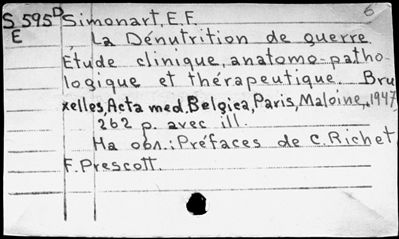 6
S 595 D Simonart, E.F.
E La Dénutrition de guerre.
Étude clinique, anatomo-patho-
logique et thérapeutique. Bru-
xelles, Acta med. Belgica, Paris, Maloine, 1947
262 p. avec ill.
На обл.: Préfaces de C. Richet,
F. Prescott.